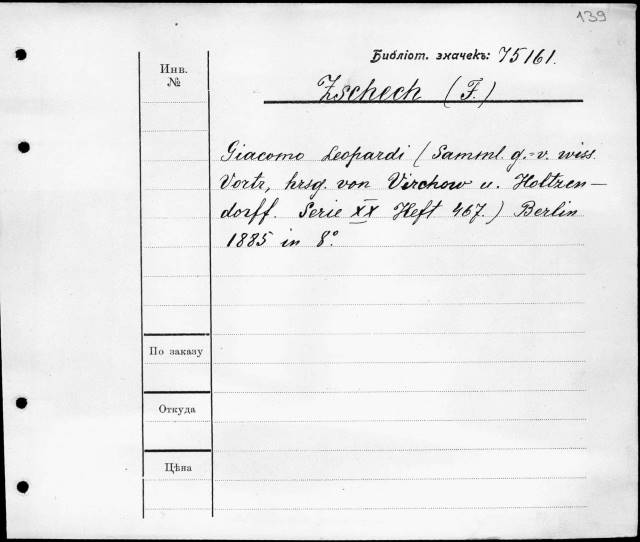 139
Библіот. значекъ: 75161.
Инв.
№
Zschech (F.)
Giacomo Leopardi (Samml. g.-v. wiss.
Vortr, hrsg. von Virchow u. Holtzen-
dorff. Serie XX Heft 467.) Berlin
1885 in 8°.
По заказу
Откуда
Цѣна